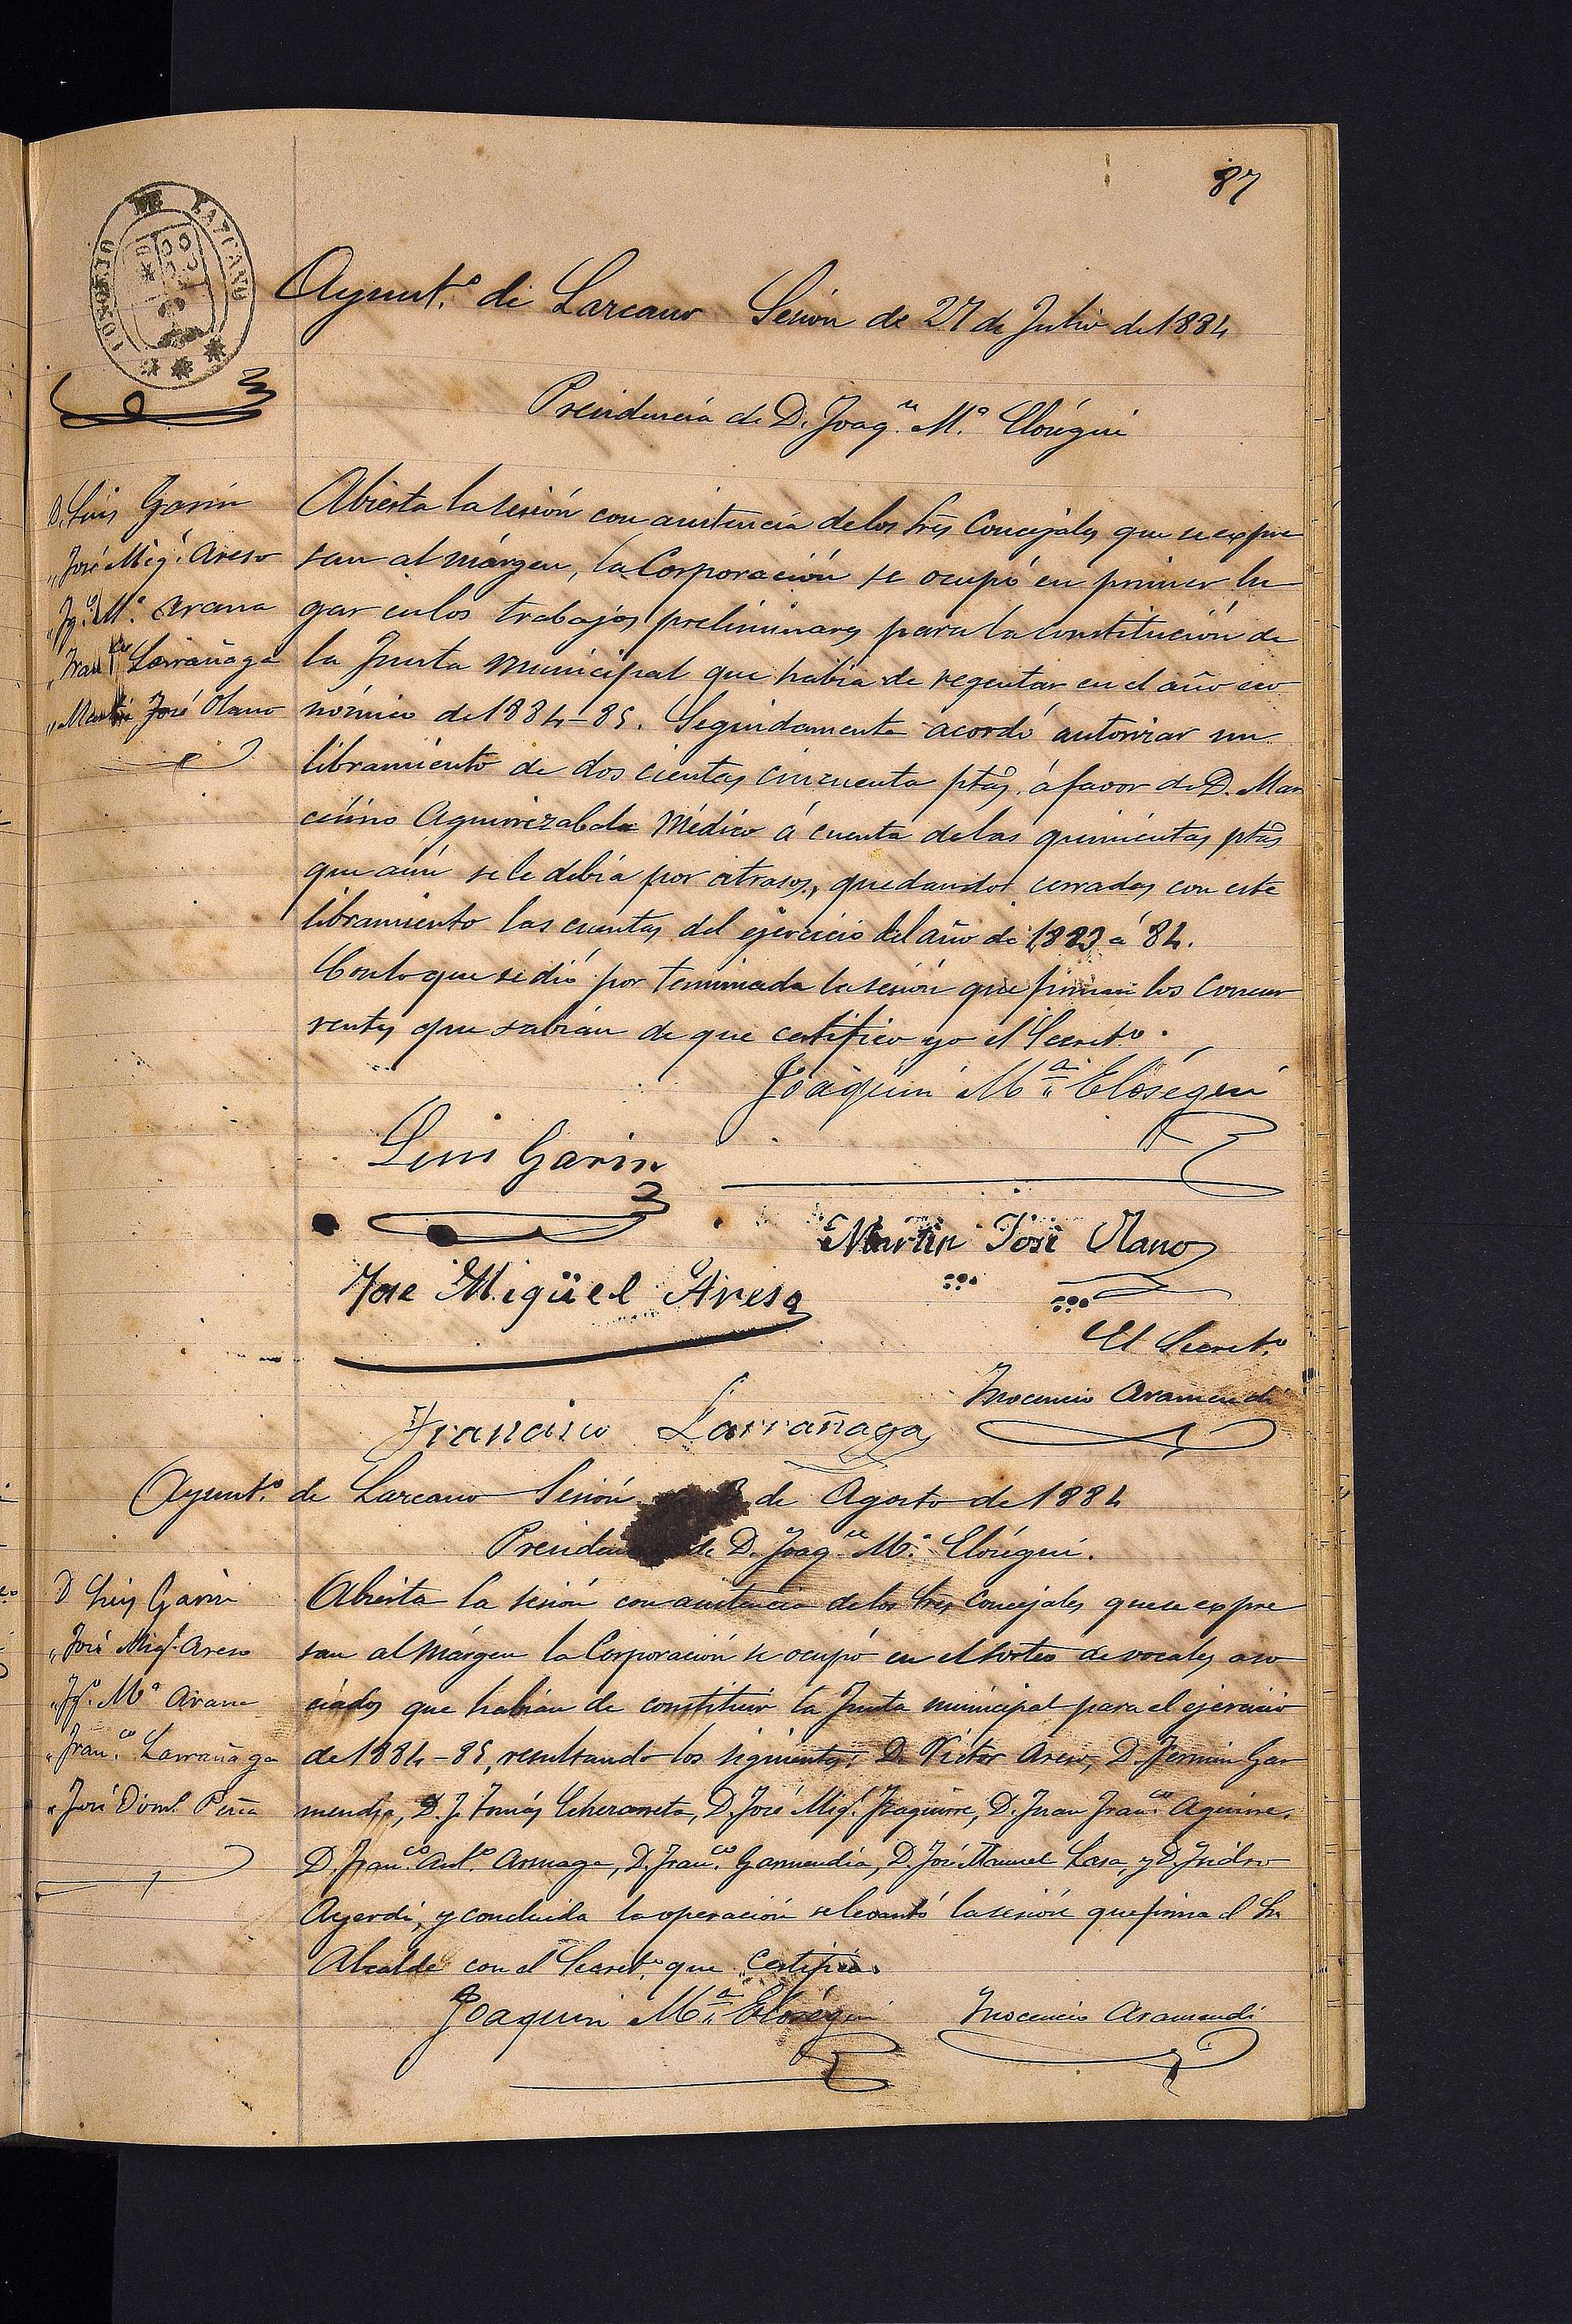 87
CONCEJO DE LAZCANO
Ayunt.º de Lazcano Sesión de 27 de Julio de 1884
Presidencia de D. Joaq.n M.ª Elosegui
D. Luis Garin
„ José Mig.l Areso
„ Ig.º M.ª Arana
„ Fran.co Larrañaga
„ Martin José Olano
Abierta la sesión con asistencia de los Sres Concejales que se expre
san al márgen, la Corporación se ocupó en primer lu
gar en los trabajos preliminares para la constitución de
la Junta Municipal que habia de regentar en el año eco
nómico de 1884-85. Seguidamente acordó autorizar un
libramiento de dos cientas cincuenta ptas. á favor de D. Mar
celino Aguirrezabala Médico á cuenta de las quinientas ptas
que aún se le debía por atrasos, quedando cerradas con este
libramiento las cuentas del ejercicio del año de 1883 á 84.
Con lo que se dió por terminada la sesión que firman los concur
rentes que sabían de que certifico yo el Secret.º
Joaquin M.ª Elósegui
Luis Garin
Martin José Olano
Jose Migüel Areso
El Secret.º
Inocencio Aramendi
Francisco Larrañaga
Ayunt.º de Lazcano Sesión 3 de Agosto de 1884
Presiden de D. Joaq.n M.ª Elósegui.
D Luis Garin
„ José Mig.l Areso
„ Ig.º M.ª Arana
„ Fran.co Larrañaga
„ José Dom.º Peña
Abierta la sesión con asistencia de los Sres Concejales que se expre
san al márgen la Corporación se ocupó en el sorteo de vocales aso
ciados que habían de constituir la Junta municipal para el ejercicio
de 1884-85, resultando los siguientes: D. Victor Areso, D. Fermin Gar
mendia, D. J. Tomás Echezarreta, D. José Mig.l Izaguirre, D. Juan Fran.co Aguirre,
D. Fran.co Ant.º Arsuaga, D. Fran.co Garmendia, D. José Manuel Lasa, y D. Isidro
Ayerdi, y concluida la operación se levantó la sesión que firma el Sr
Alcalde con el Secret.º que certifica.
Joaquin M.ª Elósegui
Inocencio Aramendi